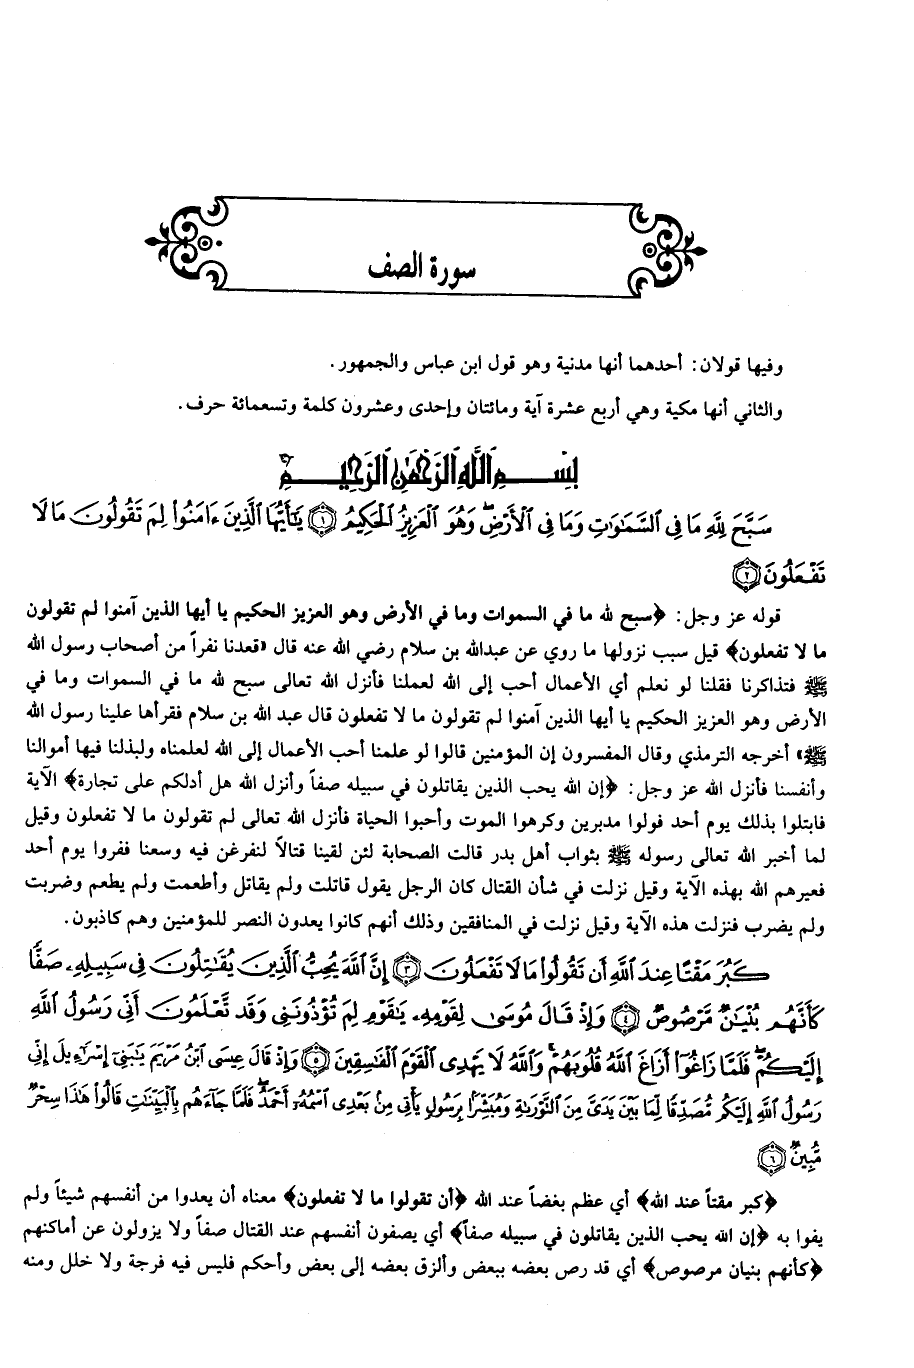 سورة الصف
وفيها قولان: أحدهما أنها مدنية وهو قول ابن عباس والجمهور.
والثاني أنها مكية وهي أربع عشرة آية ومائتان وإحدى وعشرون كلمة وتسعمائة حرف.
بِسْمِ اللَّهِ الرَّحْمَٰنِ الرَّحِيمِ
سَبَّحَ لِلَّهِ مَا فِي السَّمَٰوَٰتِ وَمَا فِي الْأَرْضِ ۖ وَهُوَ الْعَزِيزُ الْحَكِيمُ ﴿١﴾ يَٰٓأَيُّهَا الَّذِينَ ءَامَنُوا لِمَ تَقُولُونَ مَا لَا
تَفْعَلُونَ ﴿٢﴾
قوله عز وجل: ﴿سبح لله ما في السموات وما في الأرض وهو العزيز الحكيم يا أيها الذين آمنوا لم تقولون
ما لا تفعلون﴾ قيل سبب نزولها ما روي عن عبدالله بن سلام رضي الله عنه قال «قعدنا نفراً من أصحاب رسول الله
ﷺ فتذاكرنا فقلنا لو نعلم أي الأعمال أحب إلى الله لعملنا فأنزل الله تعالى سبح لله ما في السموات وما في
الأرض وهو العزيز الحكيم يا أيها الذين آمنوا لم تقولون ما لا تفعلون قال عبد الله بن سلام فقرأها علينا رسول الله
ﷺ» أخرجه الترمذي وقال المفسرون إن المؤمنين قالوا لو علمنا أحب الأعمال إلى الله لعلمناه ولبذلنا فيها أموالنا
وأنفسنا فأنزل الله عز وجل: ﴿إن الله يحب الذين يقاتلون في سبيله صفاً وأنزل الله هل أدلكم على تجارة﴾ الآية
فابتلوا بذلك يوم أحد فولوا مدبرين وكرهوا الموت وأحبوا الحياة فأنزل الله تعالى لم تقولون ما لا تفعلون وقيل
لما أخبر الله تعالى رسوله ﷺ بثواب أهل بدر قالت الصحابة لئن لقينا قتالاً لنفرغن فيه وسعنا ففروا يوم أحد
فعيرهم الله بهذه الآية وقيل نزلت في شأن القتال كان الرجل يقول قاتلت ولم يقاتل وأطعمت ولم يطعم وضربت
ولم يضرب فنزلت هذه الآية وقيل نزلت في المنافقين وذلك أنهم كانوا يعدون النصر للمؤمنين وهم كاذبون.
كَبُرَ مَقْتًا عِندَ اللَّهِ أَن تَقُولُوا مَا لَا تَفْعَلُونَ ﴿٣﴾ إِنَّ اللَّهَ يُحِبُّ الَّذِينَ يُقَٰتِلُونَ فِي سَبِيلِهِۦ صَفًّا
كَأَنَّهُم بُنْيَٰنٌ مَّرْصُوصٌ ﴿٤﴾ وَإِذْ قَالَ مُوسَىٰ لِقَوْمِهِۦ يَٰقَوْمِ لِمَ تُؤْذُونَنِي وَقَد تَّعْلَمُونَ أَنِّي رَسُولُ اللَّهِ
إِلَيْكُمْ ۖ فَلَمَّا زَاغُوٓا أَزَاغَ اللَّهُ قُلُوبَهُمْ ۚ وَاللَّهُ لَا يَهْدِي الْقَوْمَ الْفَٰسِقِينَ ﴿٥﴾ وَإِذْ قَالَ عِيسَى ابْنُ مَرْيَمَ يَٰبَنِيٓ إِسْرَٰٓءِيلَ إِنِّي
رَسُولُ اللَّهِ إِلَيْكُم مُّصَدِّقًا لِّمَا بَيْنَ يَدَيَّ مِنَ التَّوْرَىٰةِ وَمُبَشِّرًا بِرَسُولٍ يَأْتِي مِنۢ بَعْدِي اسْمُهُۥٓ أَحْمَدُ ۖ فَلَمَّا جَآءَهُم بِالْبَيِّنَٰتِ قَالُوا هَٰذَا سِحْرٌ
مُّبِينٌ ﴿٦﴾
﴿كبر مقتاً عند الله﴾ أي عظم بغضاً عند الله ﴿أن تقولوا ما لا تفعلون﴾ معناه أن يعدوا من أنفسهم شيئاً ولم
يفوا به ﴿إن الله يحب الذين يقاتلون في سبيله صفاً﴾ أي يصفون أنفسهم عند القتال صفاً ولا يزولون عن أماكنهم
﴿كأنهم بنيان مرصوص﴾ أي قد رص بعضه ببعض وألزق بعضه إلى بعض وأحكم فليس فيه فرجة ولا خلل ومنه